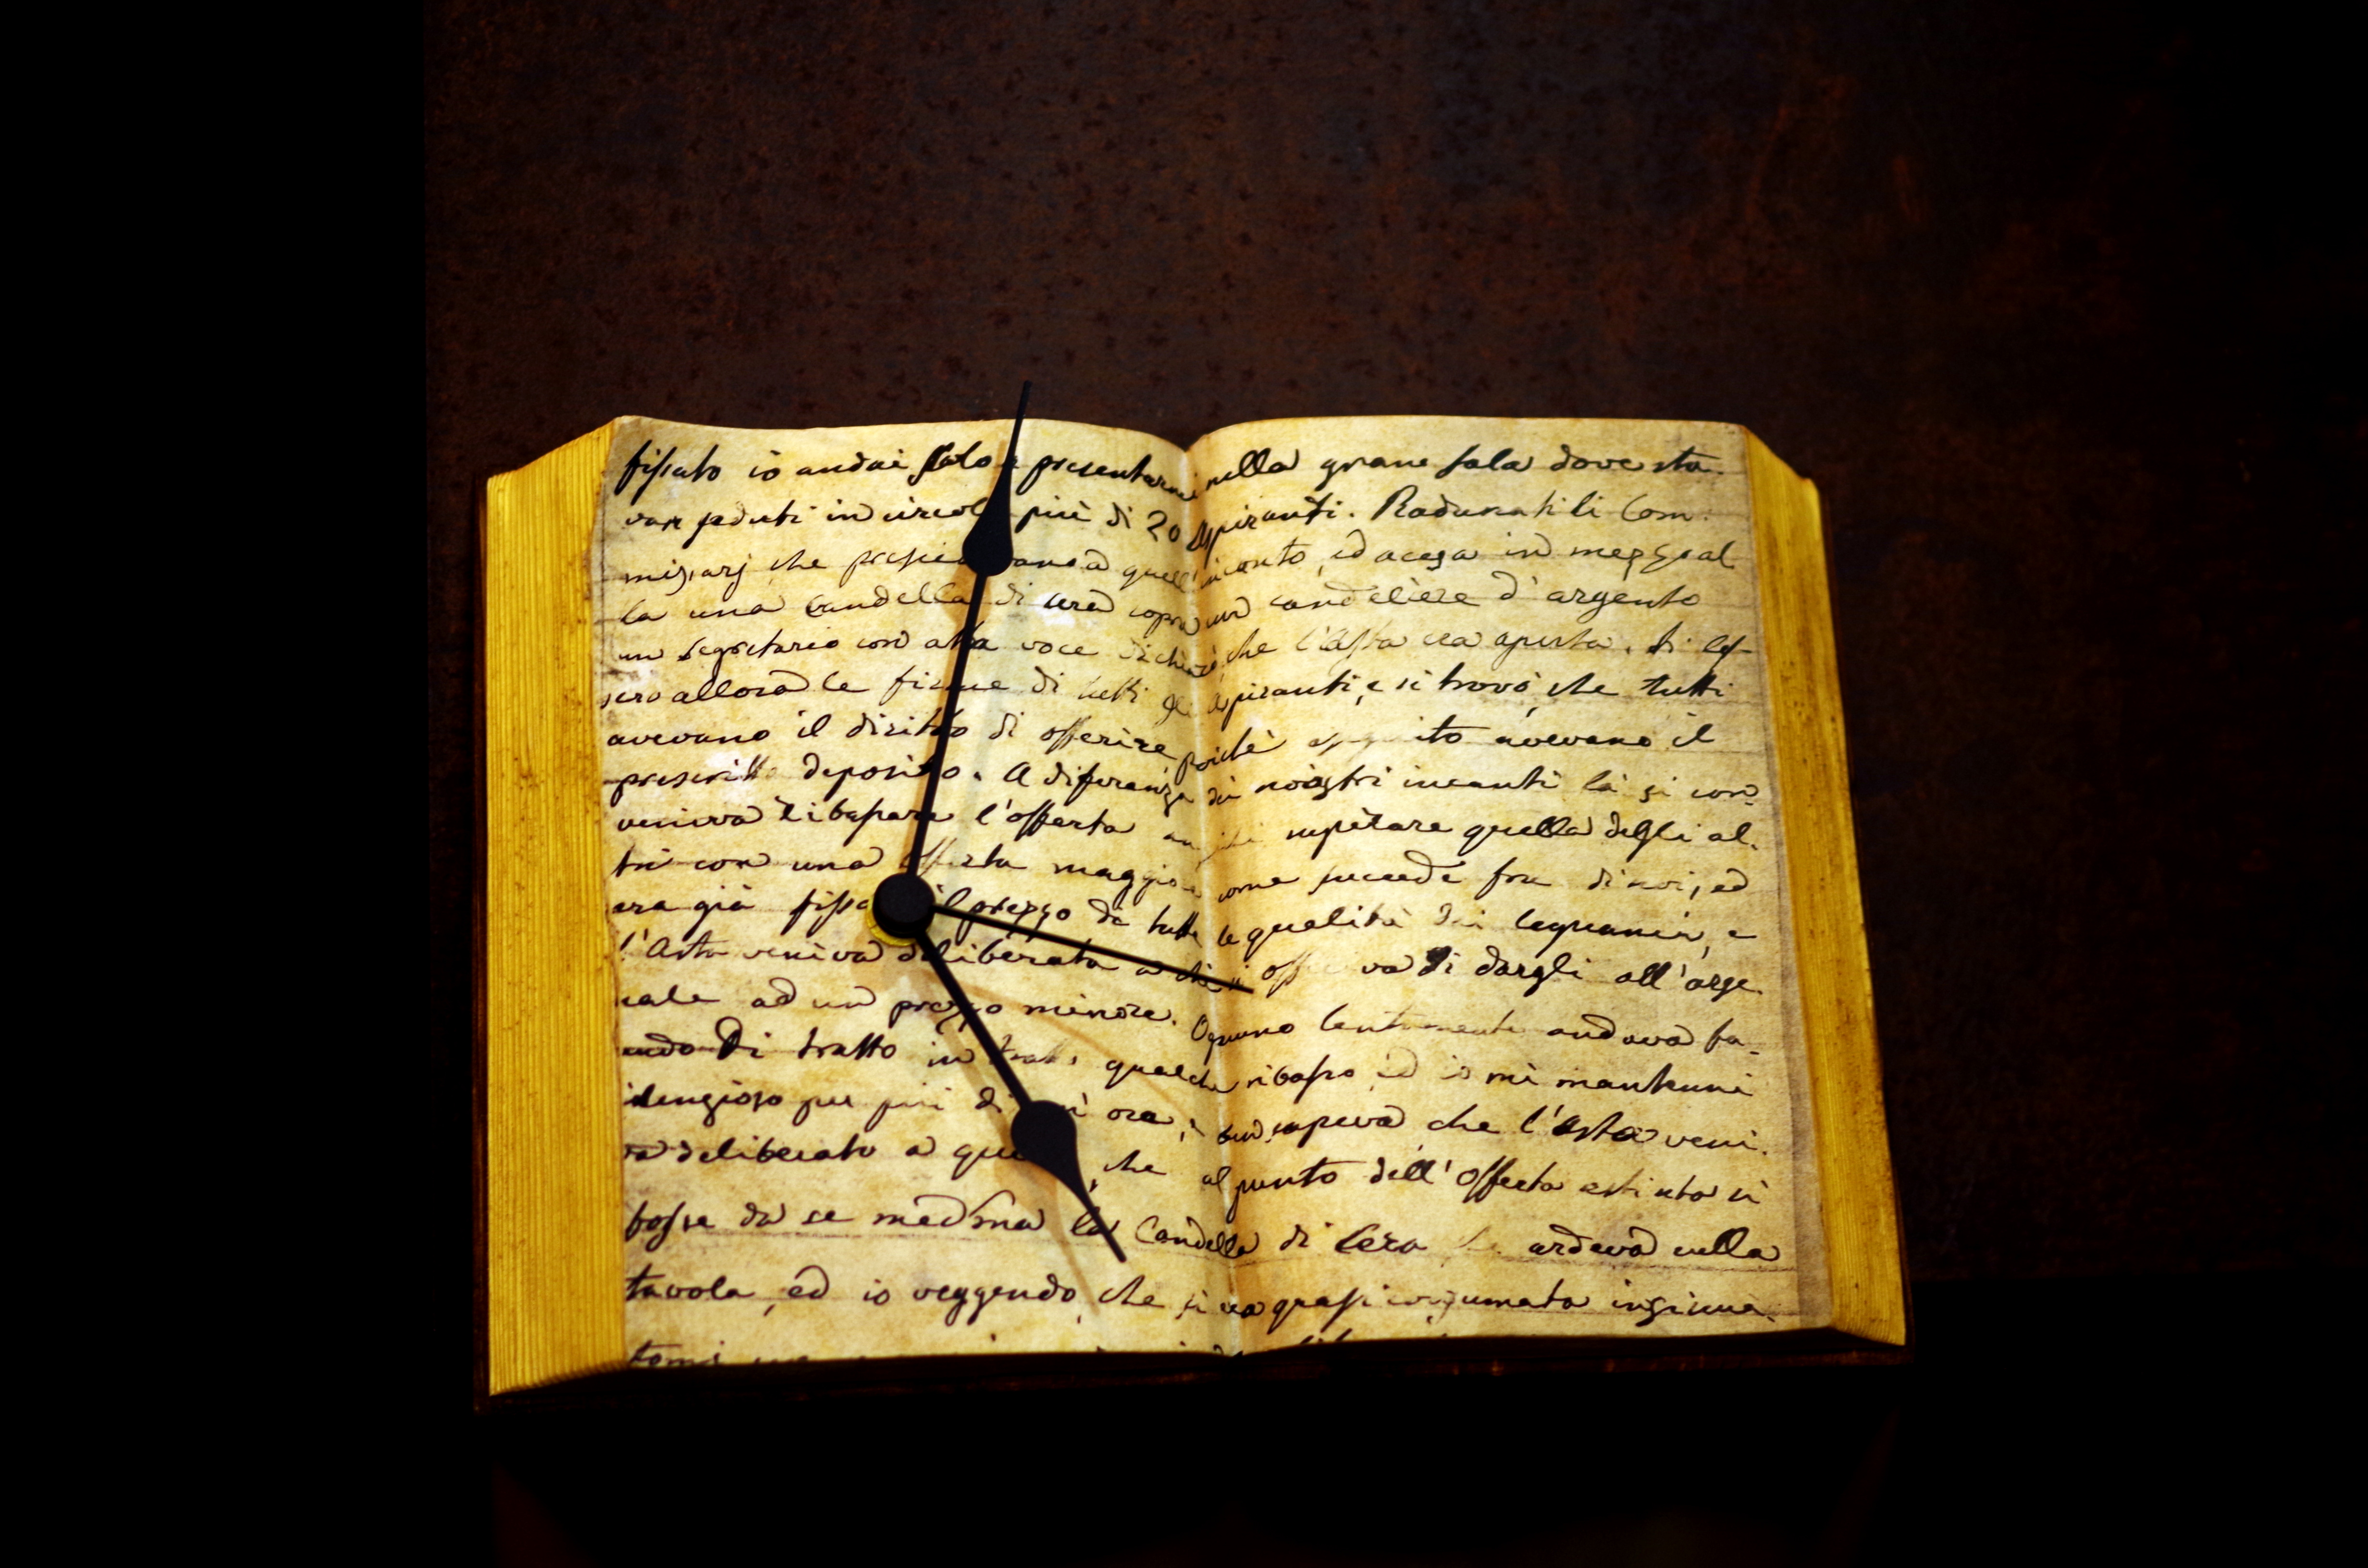 fissato io andai solo a presentarmi nella grane sala dove sta-
van seduti in circolo più di 20 Aspiranti. Radunati li Com-
missarj che presiedevano a quell'incanto, ed accesa in mezzo al-
la una Candella di cera sopra un candeliere d'argento
un segretario con alta voce dichiarò, che l'Asta era aperta. Si les-
sero allora le firme di tutti gli Aspiranti, e si trovò, che tutti
avevano il diritto di offerire poichè avevano il
prescritto deposito. A diferenza dei nostri incanti là si con-
veniva ribassare l'offerta superare quella degli al-
tri con una offerta maggiore come succede fra di noi, ed
era già fissato il prezzo di tutte le qualità dei legnami, e
l'Asta veniva deliberata a chi di dargli all'arse-
nale ad un prezzo minore. Ognuno lentamente andava fa-
cendo di tratto in tratto qualche ribasso ed io mi mantenni
silenzioso per più di ora, ben sapeva che l'Asta veni-
va deliberata a che al punto dell'Offerta estinta si
fosse da se medma la Candella di Cera ardeva nella
tavola, ed io veggendo, che si era quasi consumata